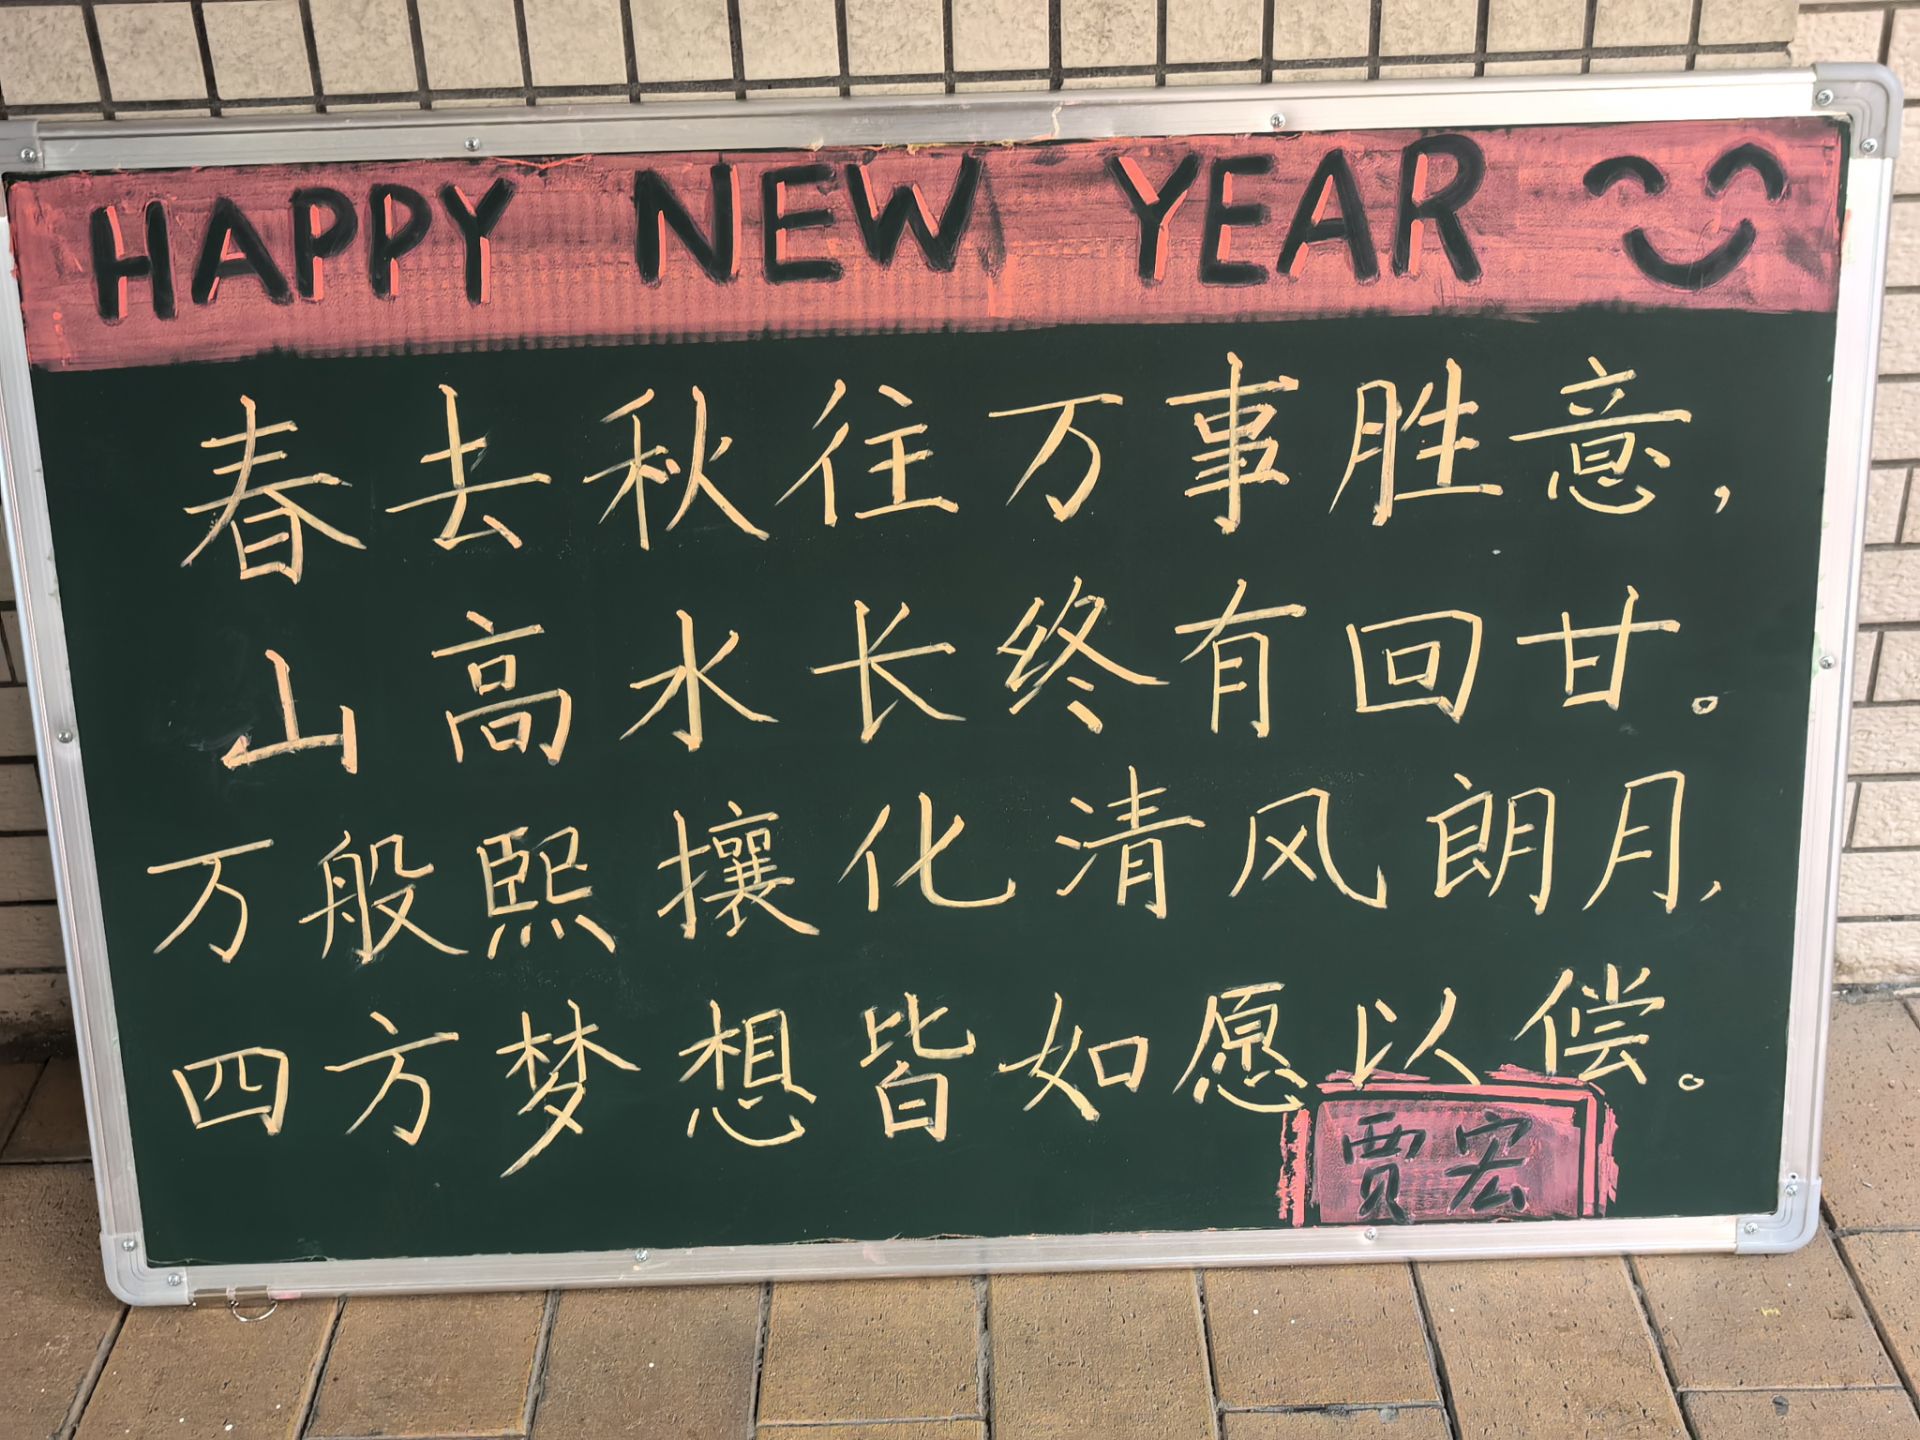 HAPPY NEW YEAR
春去秋往万事胜意,
山高水长终有回甘。
万般熙攘化清风朗月,
四方梦想皆如愿以偿。
贾宏